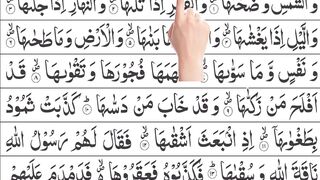 وَالشَّمْسِ وَضُحٰىهَا ۪ۙ۝۱ وَالْقَمَرِ اِذَا تَلٰىهَا ۪ۙ۝۲ وَالنَّهَارِ اِذَا جَلّٰىهَا
وَالَّيْلِ اِذَا يَغْشٰىهَا ۪ۙ۝۴ بَنٰىهَا ۪ۙ۝۵ وَالْاَرْضِ وَمَا طَحٰىهَا ۪ۙ۝۶
وَنَفْسٍ وَّمَا سَوّٰىهَا ۪ۙ۝۷ فُجُوْرَهَا وَتَقْوٰىهَا ۪ۙ۝۸ قَدْ
اَفْلَحَ مَنْ زَكّٰىهَا ۪ۙ۝۹ وَقَدْ خَابَ مَنْ دَسّٰىهَا ؕ۝۱۰ كَذَّبَتْ ثَمُوْدُ
بِطَغْوٰىهَاۤ ۪ۙ۝۱۱ اِذِ انْۢبَعَثَ اَشْقٰىهَا ۪ۙ۝۱۲ فَقَالَ لَهُمْ رَسُوْلُ اللّٰهِ
نَاقَةَ اللّٰهِ وَسُقْيٰهَا ؕ۝۱۳ فَكَذَّبُوْهُ فَعَقَرُوْهَا ۪ۙ فَدَمْدَمَ عَلَيْهِمْ